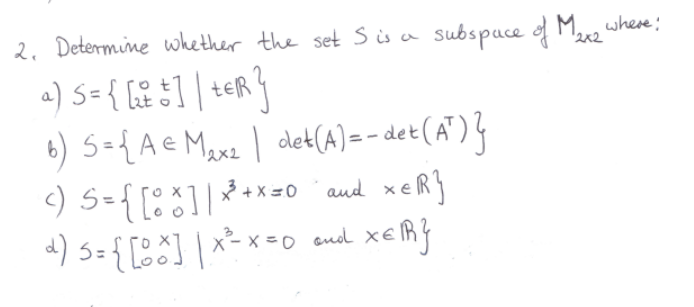 2. Determine whether the set S is a subspace of M₂ₓ₂ where:
a) S = { [0 t; 2t 0] | t∈ℝ }
b) S = { A ∈ M₂ₓ₂ | det(A) = - det(Aᵀ) }
c) S = { [0 x; 0 0] | x³ + x = 0 and x∈ℝ }
d) S = { [0 x; 0 0] | x³ - x = 0 and x∈ℝ }